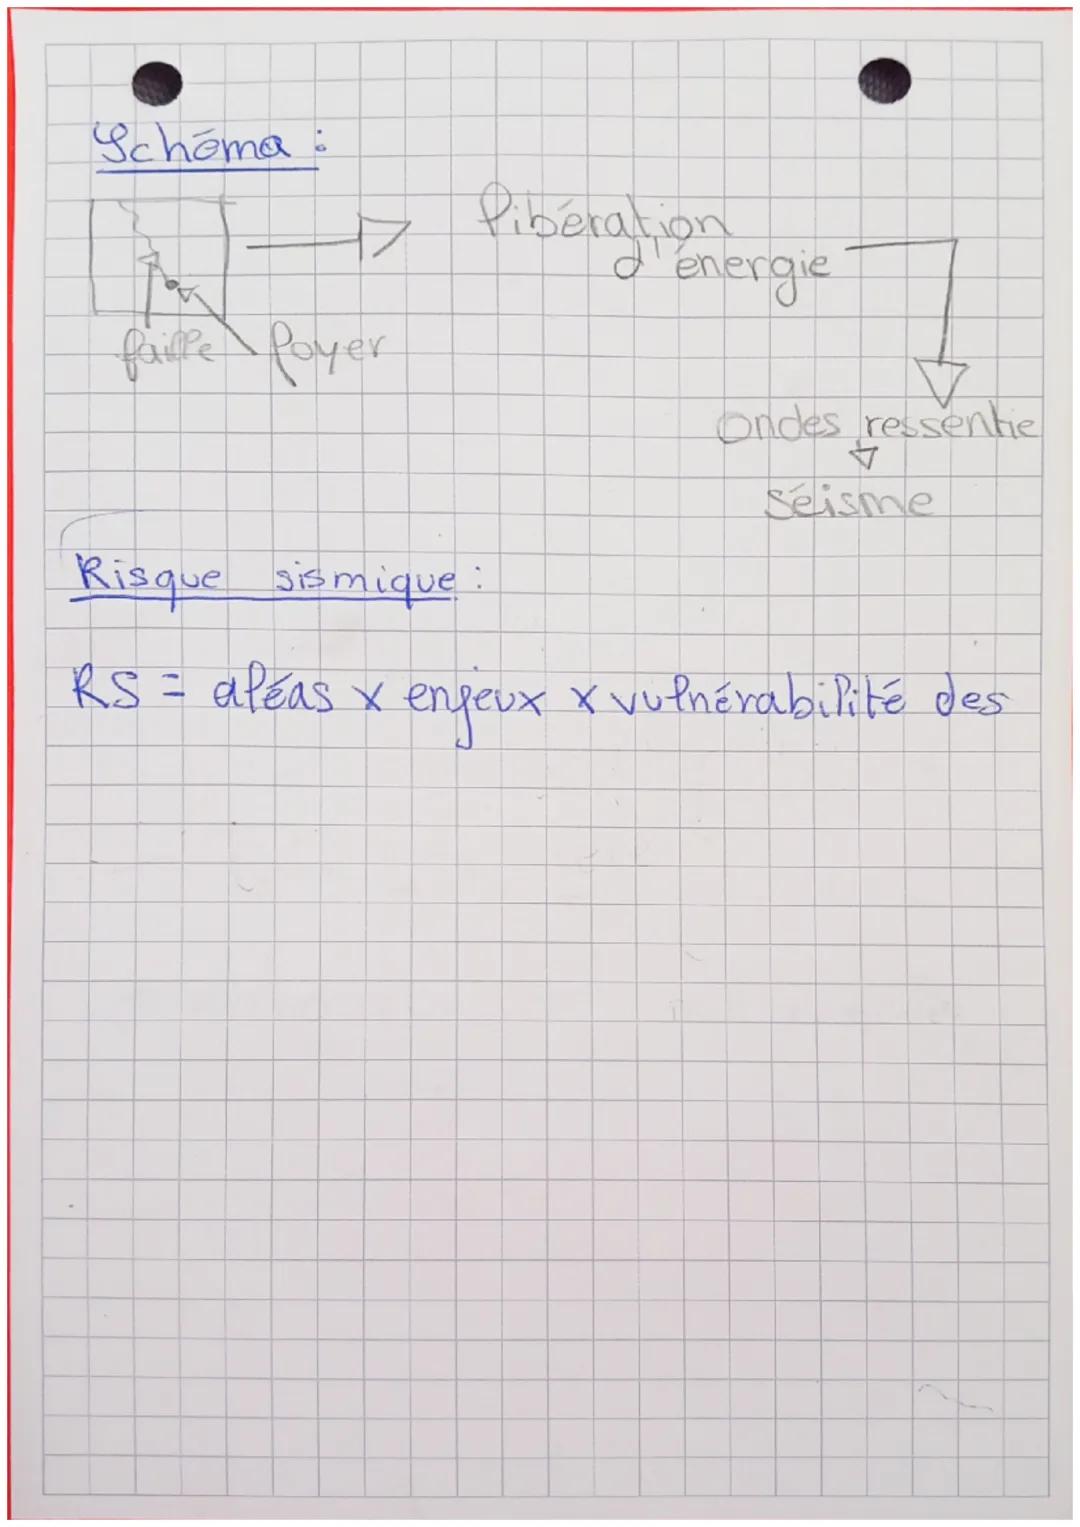 Schéma :
libération
d'énergie
faille
foyer
ondes ressentie
séisme
Risque sismique :
RS = aléas x enjeux x vulnérabilité des